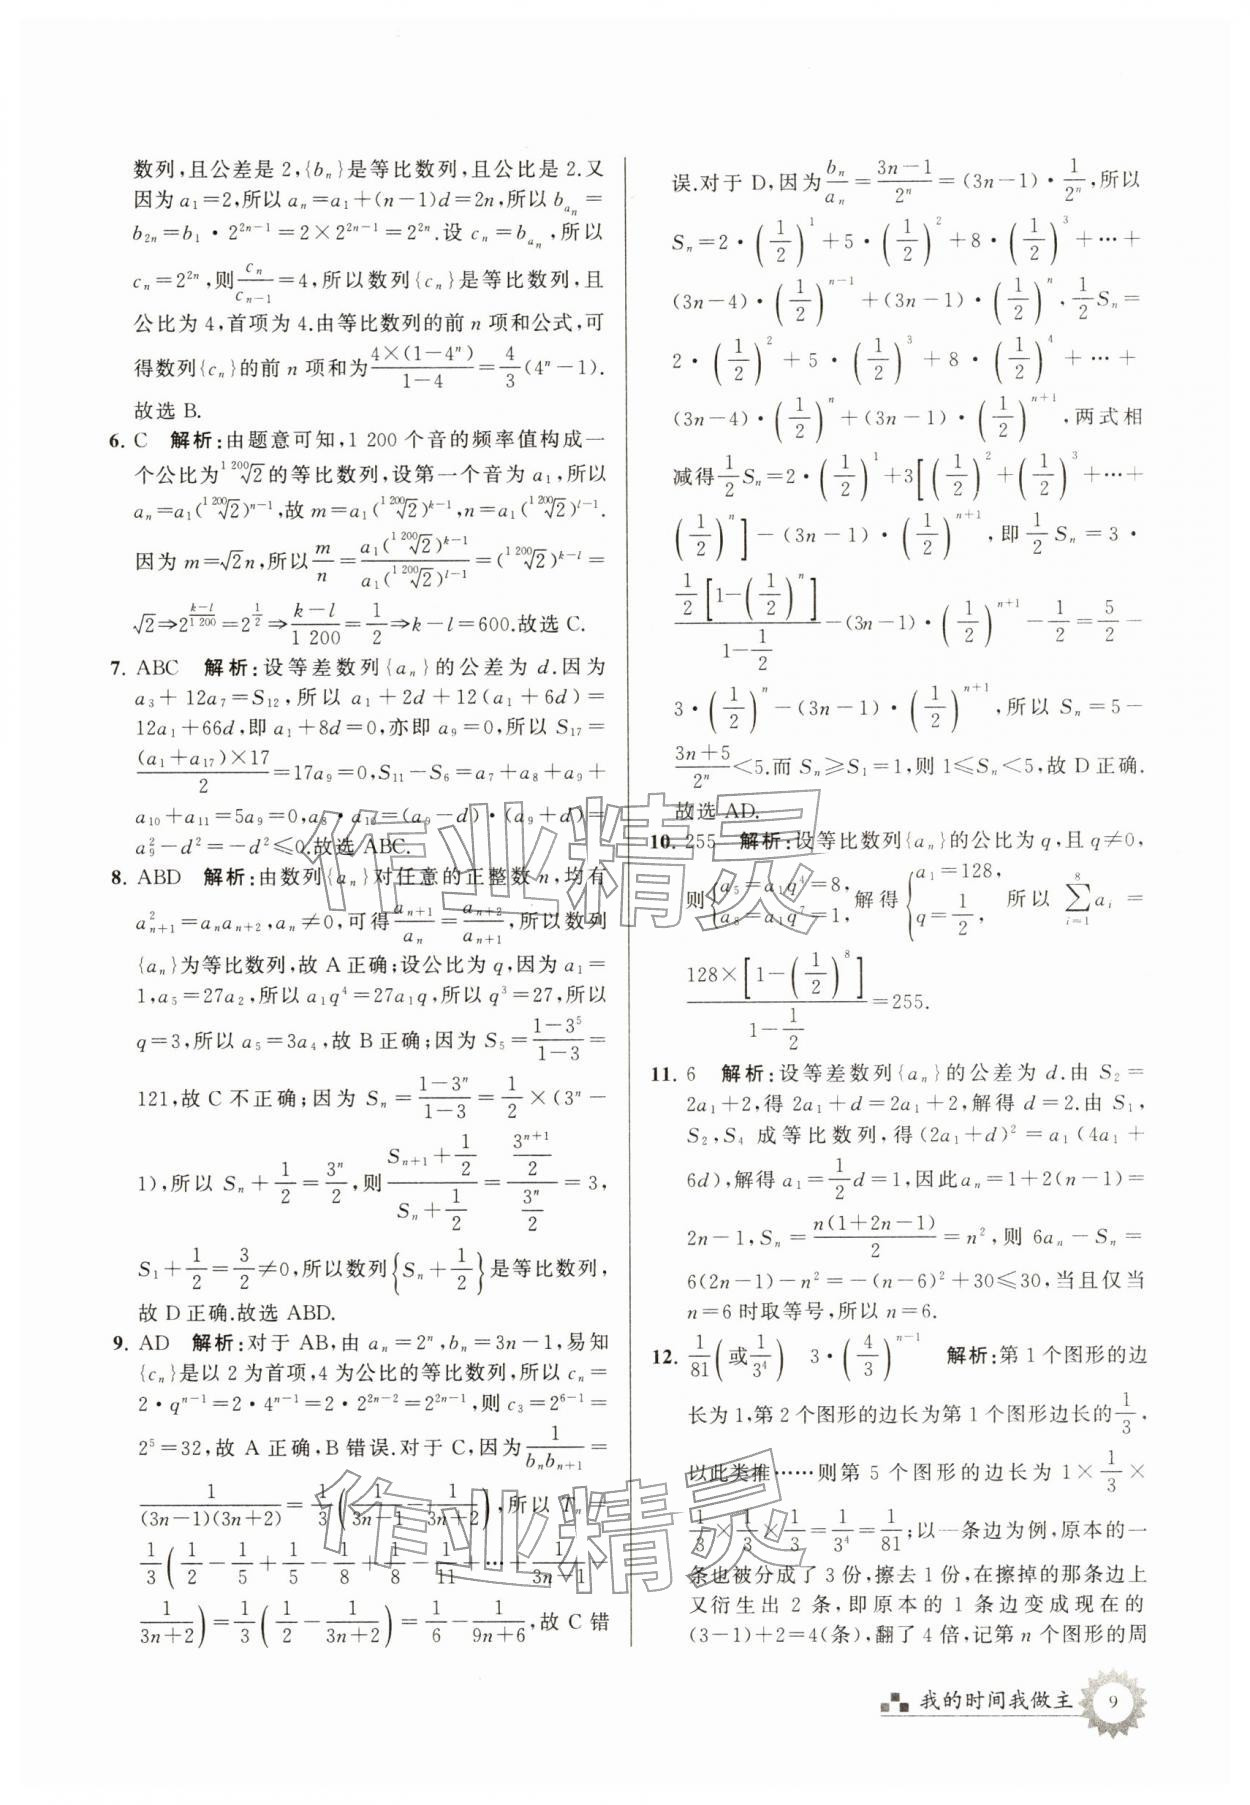 数列,且公差是2,{bₙ}是等比数列,且公比是2.又
因为a₁=2,所以aₙ=a₁+(n-1)d=2n,所以b_{aₙ}=
b₂ₙ=b₁·2^{2n-1}=2×2^{2n-1}=2^{2n}.设cₙ=b_{aₙ},所以
cₙ=2^{2n},则\frac{cₙ}{c_{n-1}}=4,所以数列{cₙ}是等比数列,且
公比为4,首项为4.由等比数列的前n项和公式,可
得数列{cₙ}的前n项和为\frac{4×(1-4^n)}{1-4}=\frac{4}{3}(4^n-1).
故选B.
6. C 解析:由题意可知,1 200个音的频率值构成一
个公比为\sqrt[1 200]{2}的等比数列,设第一个音为a₁,所以
aₙ=a₁(\sqrt[1 200]{2})^{n-1},故m=a₁(\sqrt[1 200]{2})^{k-1},n=a₁(\sqrt[1 200]{2})^{l-1}.
因为m=\sqrt{2}n,所以\frac{m}{n}=\frac{a₁(\sqrt[1 200]{2})^{k-1}}{a₁(\sqrt[1 200]{2})^{l-1}}=(\sqrt[1 200]{2})^{k-l}=
\sqrt{2}⇒2^{\frac{k-l}{1 200}}=2^{\frac{1}{2}}⇒\frac{k-l}{1 200}=\frac{1}{2}⇒k-l=600.故选C.
7. ABC 解析:设等差数列{aₙ}的公差为d.因为
a₃+12a₇=S₁₂,所以a₁+2d+12(a₁+6d)=
12a₁+66d,即a₁+8d=0,亦即a₉=0,所以S₁₇=
\frac{(a₁+a₁₇)×17}{2}=17a₉=0,S₁₁-S₆=a₇+a₈+a₉+
a₁₀+a₁₁=5a₉=0,a₈·a₁₀=(a₉-d)·(a₉+d)=
a₉²-d²=-d²≤0.故选ABC.
8. ABD 解析:由数列{aₙ}对任意的正整数n,均有
a_{n+1}^2=aₙa_{n+2},aₙ≠0,可得\frac{a_{n+1}}{aₙ}=\frac{a_{n+2}}{a_{n+1}},所以数列
{aₙ}为等比数列,故A正确;设公比为q,因为a₁=
1,a₅=27a₂,所以a₁q⁴=27a₁q,所以q³=27,所以
q=3,所以a₅=3a₄,故B正确;因为S₅=\frac{1-3^5}{1-3}=
121,故C不正确;因为Sₙ=\frac{1-3^n}{1-3}=\frac{1}{2}×(3^n-
1),所以Sₙ+\frac{1}{2}=\frac{3^n}{2},则\frac{S_{n+1}+\frac{1}{2}}{Sₙ+\frac{1}{2}}=\frac{\frac{3^{n+1}}{2}}{\frac{3^n}{2}}=3,
S₁+\frac{1}{2}=\frac{3}{2}≠0,所以数列{Sₙ+\frac{1}{2}}是等比数列,
故D正确.故选ABD.
9. AD 解析:对于AB,由aₙ=2^n,bₙ=3n-1,易知
{cₙ}是以2为首项,4为公比的等比数列,所以cₙ=
2·q^{n-1}=2·4^{n-1}=2·2^{2n-2}=2^{2n-1},则c₃=2^{6-1}=
2⁵=32,故A正确,B错误.对于C,因为\frac{1}{bₙb_{n+1}}=
\frac{1}{(3n-1)(3n+2)}=\frac{1}{3}(\frac{1}{3n-1}-\frac{1}{3n+2}),所以Tₙ=
\frac{1}{3}(\frac{1}{2}-\frac{1}{5}+\frac{1}{5}-\frac{1}{8}+\frac{1}{8}-\frac{1}{11}+…+\frac{1}{3n-1}-
\frac{1}{3n+2})=\frac{1}{3}(\frac{1}{2}-\frac{1}{3n+2})=\frac{1}{6}-\frac{1}{9n+6},故C错
误.对于D,因为\frac{bₙ}{aₙ}=\frac{3n-1}{2^n}=(3n-1)·\frac{1}{2^n},所以
Sₙ=2·(\frac{1}{2})^1+5·(\frac{1}{2})^2+8·(\frac{1}{2})^3+…+
(3n-4)·(\frac{1}{2})^{n-1}+(3n-1)·(\frac{1}{2})^n,\frac{1}{2}Sₙ=
2·(\frac{1}{2})^2+5·(\frac{1}{2})^3+8·(\frac{1}{2})^4+…+
(3n-4)·(\frac{1}{2})^n+(3n-1)·(\frac{1}{2})^{n+1},两式相
减得\frac{1}{2}Sₙ=2·(\frac{1}{2})^1+3[(\frac{1}{2})^2+(\frac{1}{2})^3+…+
(\frac{1}{2})^n]-(3n-1)·(\frac{1}{2})^{n+1},即\frac{1}{2}Sₙ=3·
\frac{\frac{1}{2}[1-(\frac{1}{2})^n]}{1-\frac{1}{2}}-(3n-1)·(\frac{1}{2})^{n+1}-\frac{1}{2}=\frac{5}{2}-
3·(\frac{1}{2})^n-(3n-1)·(\frac{1}{2})^{n+1},所以Sₙ=5-
\frac{3n+5}{2^n}<5.而Sₙ≥S₁=1,则1≤Sₙ<5,故D正确.
故选AD.
10. 255 解析:设等比数列{aₙ}的公比为q,且q≠0,
则{a₅=a₁q⁴=8, a₈=a₁q⁷=1, 解得{a₁=128, q=\frac{1}{2}, 所以\sum_{i=1}^{8}a_i=
\frac{128×[1-(\frac{1}{2})^8]}{1-\frac{1}{2}}=255.
11. 6 解析:设等差数列{aₙ}的公差为d.由S₂=
2a₁+2,得2a₁+d=2a₁+2,解得d=2.由S₁,
S₂,S₄成等比数列,得(2a₁+d)²=a₁(4a₁+
6d),解得a₁=\frac{1}{2}d=1,因此aₙ=1+2(n-1)=
2n-1,Sₙ=\frac{n(1+2n-1)}{2}=n²,则6aₙ-Sₙ=
6(2n-1)-n²=-(n-6)²+30≤30,当且仅当
n=6时取等号,所以n=6.
12. \frac{1}{81}(或\frac{1}{3^4}) 3·(\frac{4}{3})^{n-1} 解析:第1个图形的边
长为1,第2个图形的边长为第1个图形边长的\frac{1}{3},
以此类推……则第5个图形的边长为1×\frac{1}{3}×
\frac{1}{3}×\frac{1}{3}×\frac{1}{3}=\frac{1}{3^4}=\frac{1}{81};以一条边为例,原本的一
条也被分成了3份,擦去1份,在擦掉的那条边上
又衍生出2条,即原本的1条边变成现在的
(3-1)+2=4(条),翻了4倍,记第n个图形的周
作业精灵
作业精灵
我的时间我做主
9